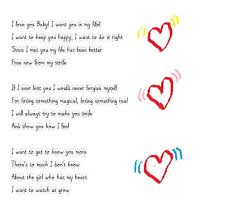 I love you Baby! I want you in my life!
I want to keep you happy, I want to do it right
Since I met you my life has been better
Free now from my smile
If I ever lost you I would never forgive myself
For losing something magical, losing something real
I will always try to make you smile
And show you how I feel
I want to get to know you more
There's so much I don't know
About the girl who has my heart
I want to watch us grow